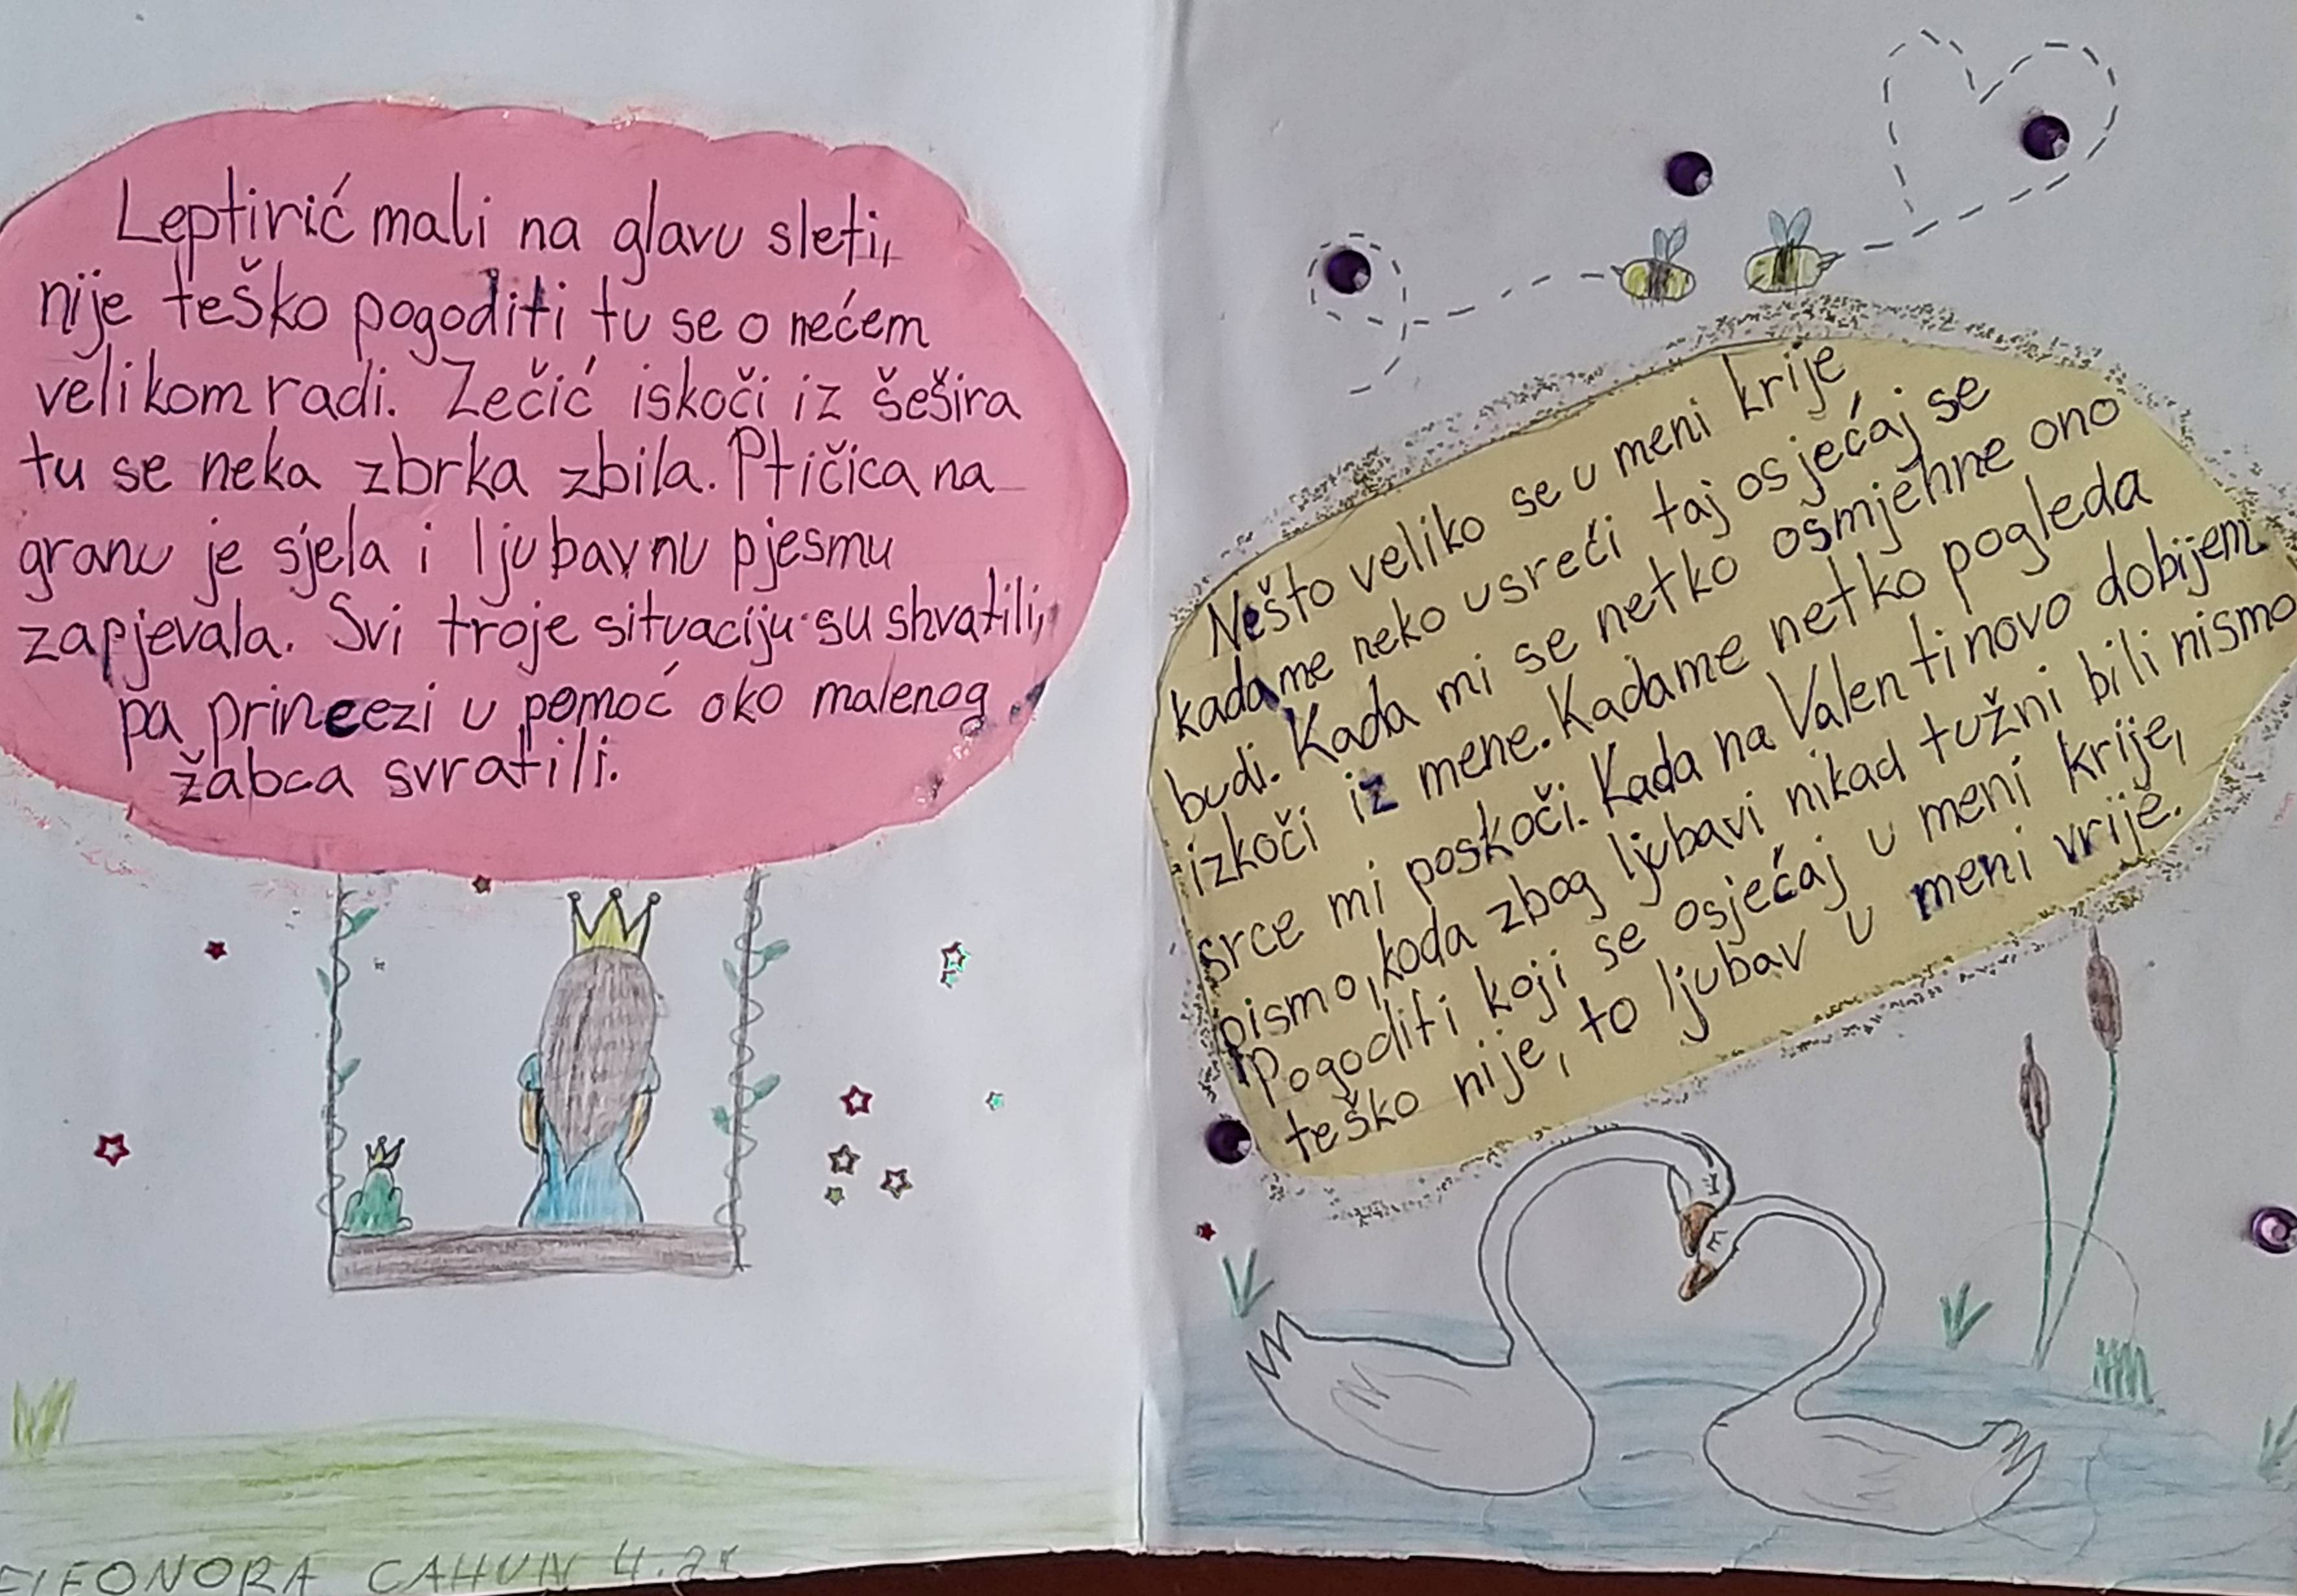 Leptirić mali na glavu sleti,
nije teško pogoditi tu se o nećem
velikom radi. Zečić iskoči iz šešira
tu se neka zbrka zbila. Ptičica na
granu je sjela i ljubavnu pjesmu
zapjevala. Svi troje situaciju su shvatili,
pa princezi u pomoć oko malenog
žabca svratili.
Nešto veliko se u meni krije
kada me neko usreći taj osjećaj se
budi. Kada mi se netko osmjehne ono
izkoči iz mene. Kada me netko pogleda
srce mi poskoči. Kada na Valentinovo dobijem
pismo, koda zbog ljubavi nikad tužni bili nismo
Pogoditi koji se osjećaj u meni krije,
teško nije, to ljubav u meni vrije.
ELEONORA CAHUN